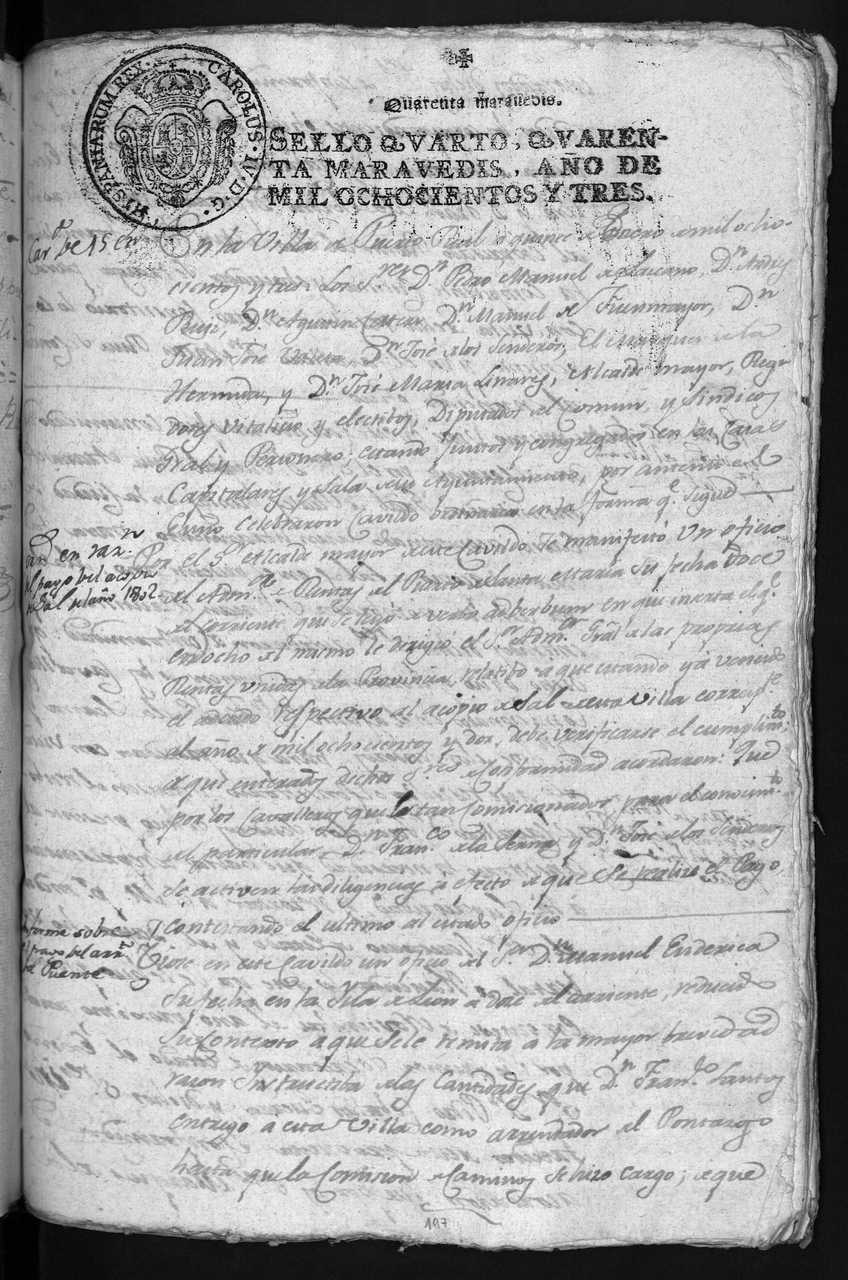 HISPANIARUM REX. CAROLUS. IV. D. G.
Quarenta maravedis.
SELLO QVARTO, QVAREN-
TA MARAVEDIS, AÑO DE
MIL OCHOCIENTOS Y TRES.
de 15 En
En la Villa de Puerto Real a quince de Enero de mil ocho-
cientos y tres los Sres Dn Pedro Manuel de Dn Andres
Ruiz, Dn Agustin Dn Manuel de Fuenmayor, Dn
Juan José Dn José de los Senderos, El Marques de la
Hermida, y Dn José Maria Linares, Alcalde mayor, Regi
dores Vitalicio y electivos, Diputados del Comun, y Sindicos
Gral y Personero: estando Juntos y congregados en las Casas
Capitulares y Sala de su Ayuntamiento, por ante mi el
celebraron Cavildo ordinario en la forma qe Sigue
en raz.n
pago del acopio
de Sal del año 1802
Por el Sr Alcalde mayor de este Cavildo Se manifestó Un oficio
del Admor de Rentas del Puerto de Santa Maria Su fecha Doce
del corriente que se leyó a verbo ad berbum en que inserta el qe
en ocho del mismo le dirigio el Sr Admor Gral de las propias
Rentas Unidas de la Provincia, relatibo a que estando yá vencido
el respectivo al acopio de Sal de esta Villa correspte
el año de mil ochocientos y dos, debe verificarse el cumplimto
a qe enterados dichos Sres de Conformidad acordaron: Que
por los Cavalleros que estan Comicionados para el conocimto
del particular, Dn Franco de la Serna y Dn José de los Senderos
Se activen las diligencias a efecto de que Se realize el Pago,
contestando el ultimo al citado oficio
forme sobre
el pago del arrdo
del Puente
Viose en este Cavildo un oficio del Sor Dn Manuel Enderica
Su fecha en la Ysla de Leon a doce del corriente, reducido
Su Contexto a que Se le remita a la mayor brevedad
razon Instructiba de las Cantidades que Dn Franco Santos
entregó a esta Villa como arrendador del Pontazgo
hasta que la Comision de Caminos Se hizo cargo; a que
197